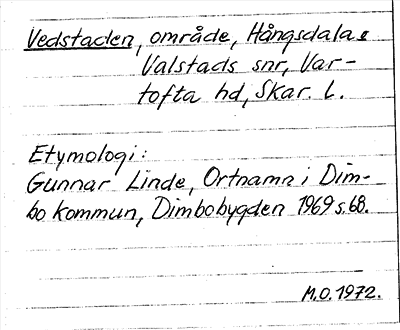 Vedstaden, område, Hångsdala &
Valstads snr, Var-
tofta hd, Skar. L.
Etymologi:
Gunnar Linde, Ortnamn i Dim-
bo kommun, Dimbobygden 1969 s. 68.
M.O. 1972.